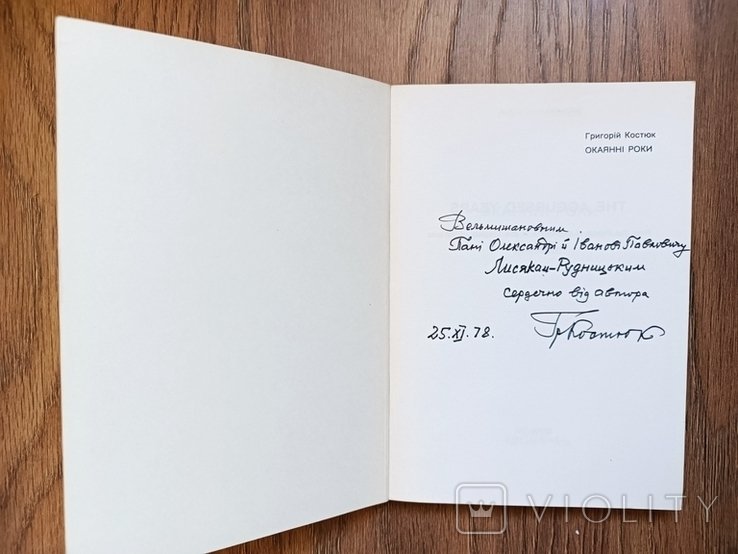 Григорій Костюк
ОКАЯННІ РОКИ
THE ACCURSED YEARS
Вельмишановним
Пані Олександрі й Іванові Павловичу
Лисякам-Рудницьким
сердечно від автора
25.XI.78.
Гр Костюк
VIOLITY